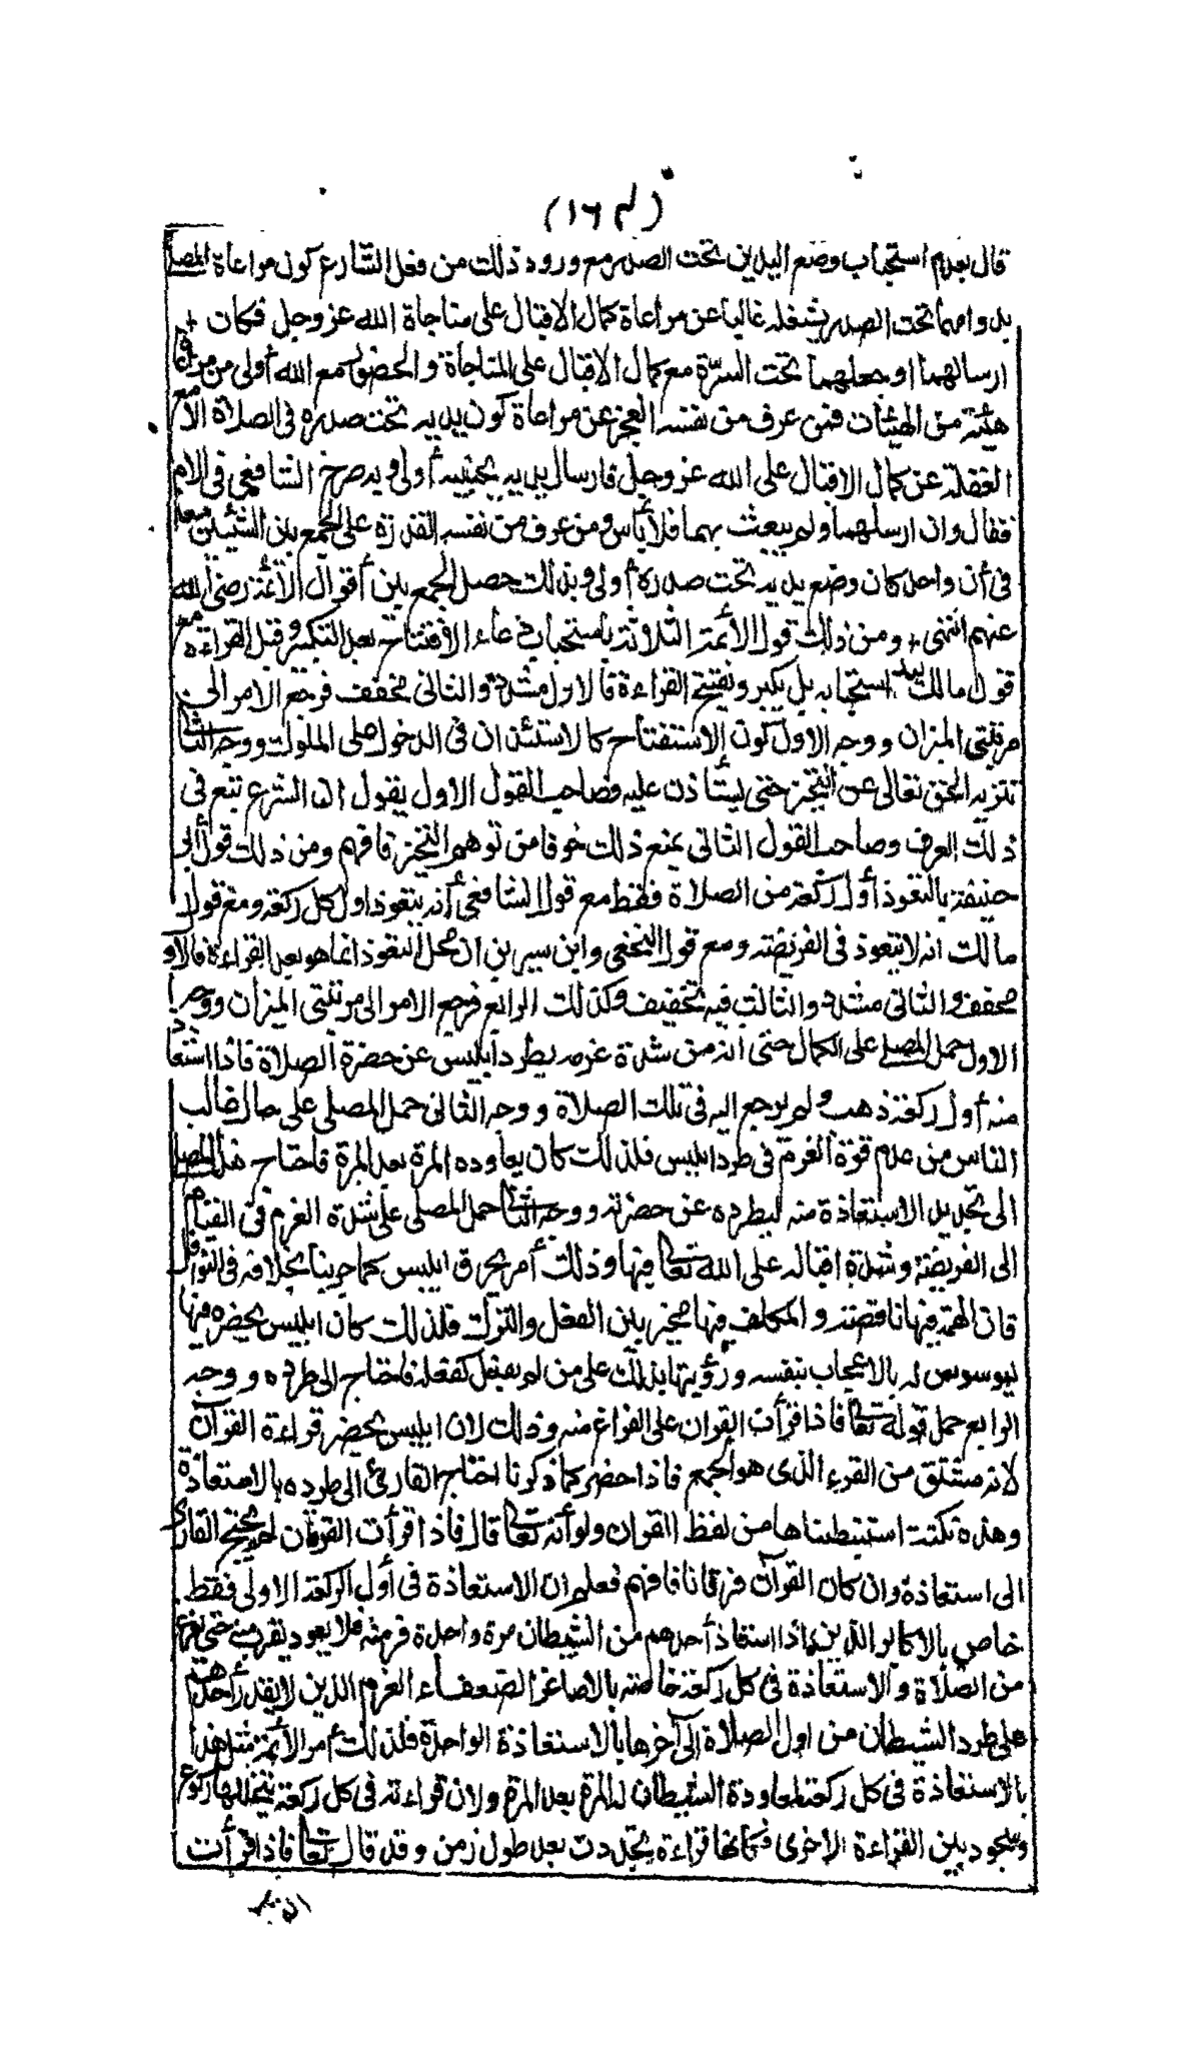 (١٦٤)
قال بعدم استحباب وضع اليدين تحت الصدر مع ورود ذلك من فعل الشارع كون مراعاة المصلى
يديه انهما تحت الصدر يشغله غالبا عن مراعاة كمال الاقبال على مناجاة الله عز وجل فكان
ارسالهما او جعلهما تحت السرّة مع كمال الاقبال على المناجاة والحضور مع الله أولى من مراعاة
هيئة من الهيئات فمن عرف من نفسه العجز عن مراعاة كون يديه تحت صدره فى الصلاة الا مع
الغفلة عن كمال الاقبال على الله عز وجل فارسال يديه بجنبيه أولى وبه صرح الشافعى فى الام
فقال وان ارسلهما ولم يعبث بهما فلا بأس ومن عرف من نفسه القدرة على الجمع بين الشيئين معا
فى أن واحد كان وضع يديه تحت صدره أولى وبذلك حصل الجمع بين أقوال الائمة رضى الله
عنهم انتهى + ومن ذلك قول الأئمة الثلاثة باستحباب دعاء الافتتاح بعد التكبير وقبل القراءة مع
قول مالك بعدم استحبابه بل يكبر ويفتتح القراءة فالاول مشدد والثانى مخفف فرجع الامر الى
مرتبتى الميزان ووجه الاول كون الاستفتاح كالاستئذان فى الدخول على الملوك ووجه الثانى
تنزيه الحق تعالى عن التحيز حتى يستأذن عليه فصاحب القول الاول يقول ان الشرع تبع فى
ذلك العرف وصاحب القول الثانى يمنع ذلك خوفا من توهم التحيز فافهم ومن ذلك قول أبى
حنيفة بالتعوذ أول ركعة من الصلاة فقط مع قول الشافعى أنه يتعوذ اول كل ركعة ومع قول
مالك انه لا يتعوذ فى الفريضة ومع قول النخعى وابن سيرين ان محل التعوذ انما هو بعد القراءة فالاول
مخفف والثانى مشدد والثالث فيه تخفيف وكذلك الرابع فرجع الامر الى مرتبتى الميزان ووجه
الاول حمل المصلى على الكمال حتى انه من شدة عزمه يطرد ابليس عن حضرة الصلاة فاذا استعاذ
منه أول ركعة ذهب ولم يرجع اليه فى تلك الصلاة ووجه الثانى حمل المصلى على حال غالب
الناس من عدم قوة العزم فى طرد ابليس فلذلك كان يعاوده المرة بعد المرة فاحتاج هذا المصلى
الى تجديد الاستعاذة منه ليطرده عن حضرته ووجه الثالث حمل المصلى على شدة العزم فى القيام
الى الفريضة وشدة اقباله على الله تعالى فيها وذلك أمر يحرق ابليس كما جربنا بخلافه فى النوافل
فان الهمة فيها ناقصة والمكلف فيها مخير بين الفعل والترك فلذلك كان ابليس يحضره فيها
ليوسوس له بالاعجاب بنفسه ورؤيتها بذلك على من لم يفعل كفعله فاحتاج الى طرده ووجه
الرابع حمل قوله تعالى فاذا قرأت القران على الفراغ منه وذلك لان ابليس يحضر قراءة القرآن
لانه مشتق من القرء الذى هو الجمع فاذا حضر كما ذكرنا احتاج القارئ الى طرده بالاستعاذة
وهذه نكتة استنبطناها من لفظ القران ولو أنه تعالى قال فاذا قرأت الفرقان لم يحتج القارى
الى استعاذة وان كان القرآن فرقانا فافهم فعلم ان الاستعاذة فى أول الركعة الاولى فقط
خاص بالاكابر الذين اذا استعاذ أحدهم من الشيطان مرة واحدة فر منه فلا يعود يقرب منه حتى يفرغ
من الصلاة والاستعاذة فى كل ركعة خاصة بالاصاغر الضعفاء العزم الذين لا يقدر أحدهم
على طرد الشيطان من اول الصلاة الى آخرها بالاستعاذة الواحدة فلذلك أمر الأئمة مثل هذا
بالاستعاذة فى كل ركعة لمعاودة الشيطان له المرة بعد المرة ولان قراءته فى كل ركعة يتخللها ركوع
وسجود بين القراءة الاخرى فكانها قراءة تجددت بعد طول زمن وقد قال تعالى فاذا قرأت